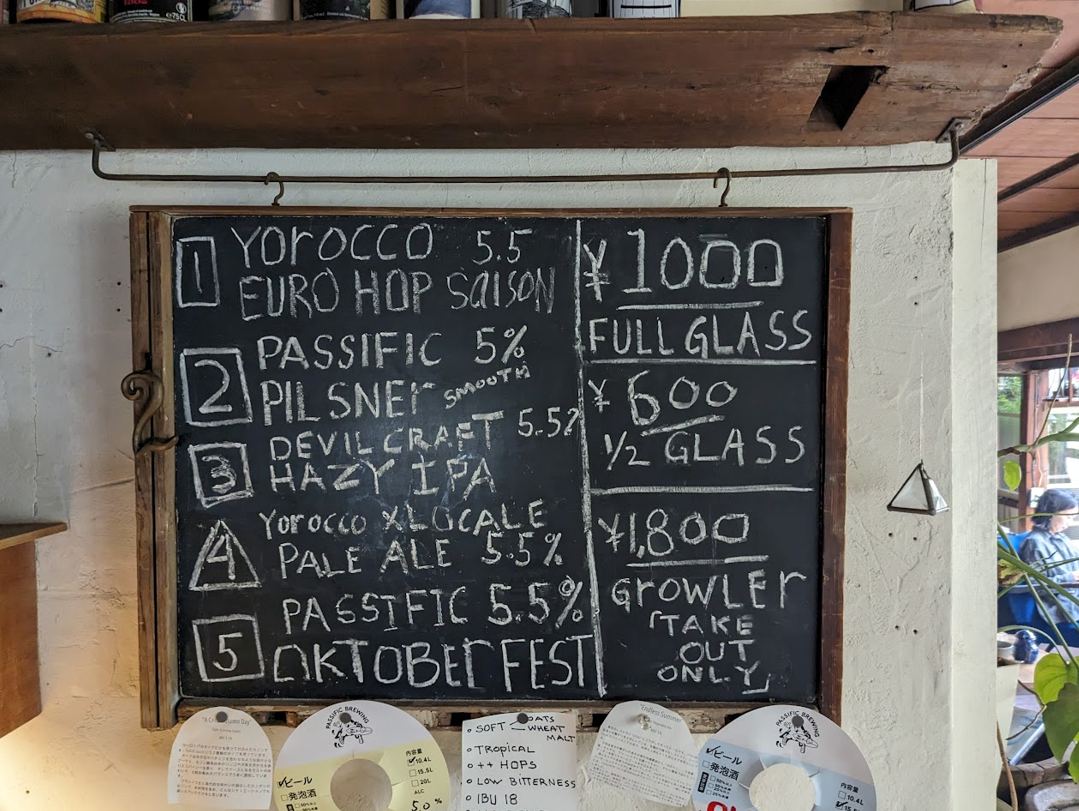 1
YOROCCO 5.5
EURO HOP SAISON
2
PASSIFIC 5%
PILSNER SMOOTH
3
DEVIL CRAFT 5.5%
HAZY IPA
4
Yorocco X LOCALE
PALE ALE 5.5%
5
PASSIFIC 5.5%
OKTOBERFEST
¥1000
FULL GLASS
¥600
1/2 GLASS
¥1,800
GROWLER
「TAKE
OUT
ONLY」
PASSIFIC BREWING
ビール
発泡酒
内容量
10.4L
15.5L
20L
ALC
5.0%
• SOFT OATS
WHEAT
MALT
• Tropical
• ++ HOPS
• LOW BITTERNESS
• IBU 18
"Endless Summer
PASSIFIC BREWING
ビール
発泡酒
内容量
10.4L